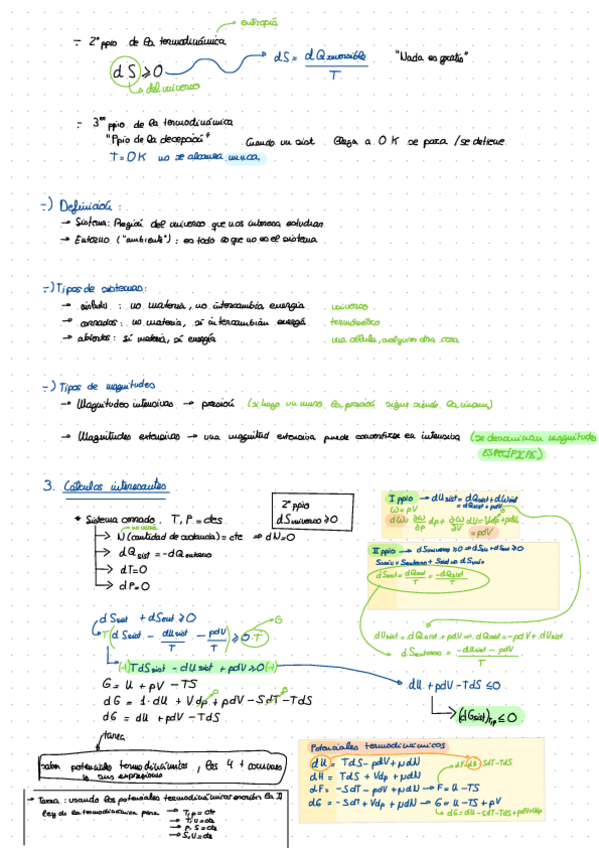 entropía
- 2º ppio de la termodinámica
dS ≥ 0
del universo
dS = dQreversible / T
"Nada es gratis"
- 3er ppio de la termodinámica
"Ppio de la decepción"
Cuando un sist. llega a 0 K se para / se detiene
T = 0 K no se alcanza nunca
-) Definición:
→ Sistema: Región del universo que nos interesa estudiar
→ Entorno ("ambiente"): es todo lo que no es el sistema
-) Tipos de sistemas:
→ aislado: no materia, no intercambia energía universo
→ cerrados: no materia, sí intercambian energía termodinámico
→ abiertos: sí materia, sí energía una célula, cualquier otra cosa
-) Tipos de magnitudes
→ Magnitudes intensivas → presión (si hago un muro, la presión sigue siendo la misma)
→ Magnitudes extensivas → una magnitud extensiva puede convertirse en intensiva (se denominan magnitudes
ESPECÍFICAS)
3. Cálculos interesantes
2º ppio
dSuniverso ≥ 0
* Sistema cerrado. T, P = ctes
→ N (cantidad de sustancia) = cte ⇒ dN=0
→ dQsist = -dQentorno
→ dT=0
→ dP=0
I ppio → dUsist = dQsist + dWsist
= dQsist + pdV
W = pV
dW = ∂W/∂p dp + ∂W/∂V dV = Vdp + pdV
= pdV
II ppio → dSuniverso ≥ 0 ⇒ dSsist + dSent ≥ 0
Suniv = Sentorno + Ssist ⇒ dSuniv
dSent = dQent / T = -dQsist / T
dSsist + dSent ≥ 0
T(dSsist - dUsist/T - pdV/T) ≥ 0·T
dUsist = dQsist + pdV ⇒ dQsist = -pdV + dUsist
dSentorno = -dUsist - pdV / T
(-1) TdSsist - dUsist + pdV ≥ 0 (-1)
dU + pdV - TdS ≤ 0
(dGsist)T,p ≤ 0
G = U + pV - TS
dG = 1·dU + Vdp + pdV - SdT - TdS
dG = dU + pdV - TdS
tarea
Saber potenciales termodinámicos, los 4 + conocer
sus expresiones
→ Tarea: usando los potenciales termodinámicos escribir la II
ley de la termodinámica para → T, p = cte
→ T, V = cte
→ p, S = cte
→ S, V = cte
Potenciales termodinámicos
dU = TdS - pdV + μdN
dH = TdS + Vdp + μdN
dF = -SdT - pdV + μdN → F = U - TS
dF = dU - SdT - TdS
dG = -SdT + Vdp + μdN → G = U - TS + pV
dG = dU - SdT - TdS + pdV + Vdp